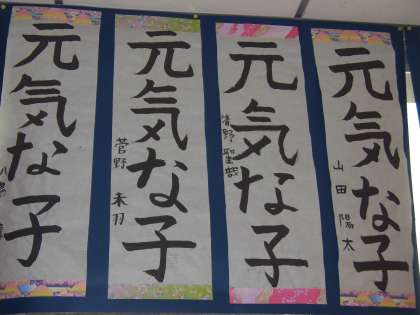 元気な子
山田陽太
元気な子
元気な子
菅野未羽
元気な子